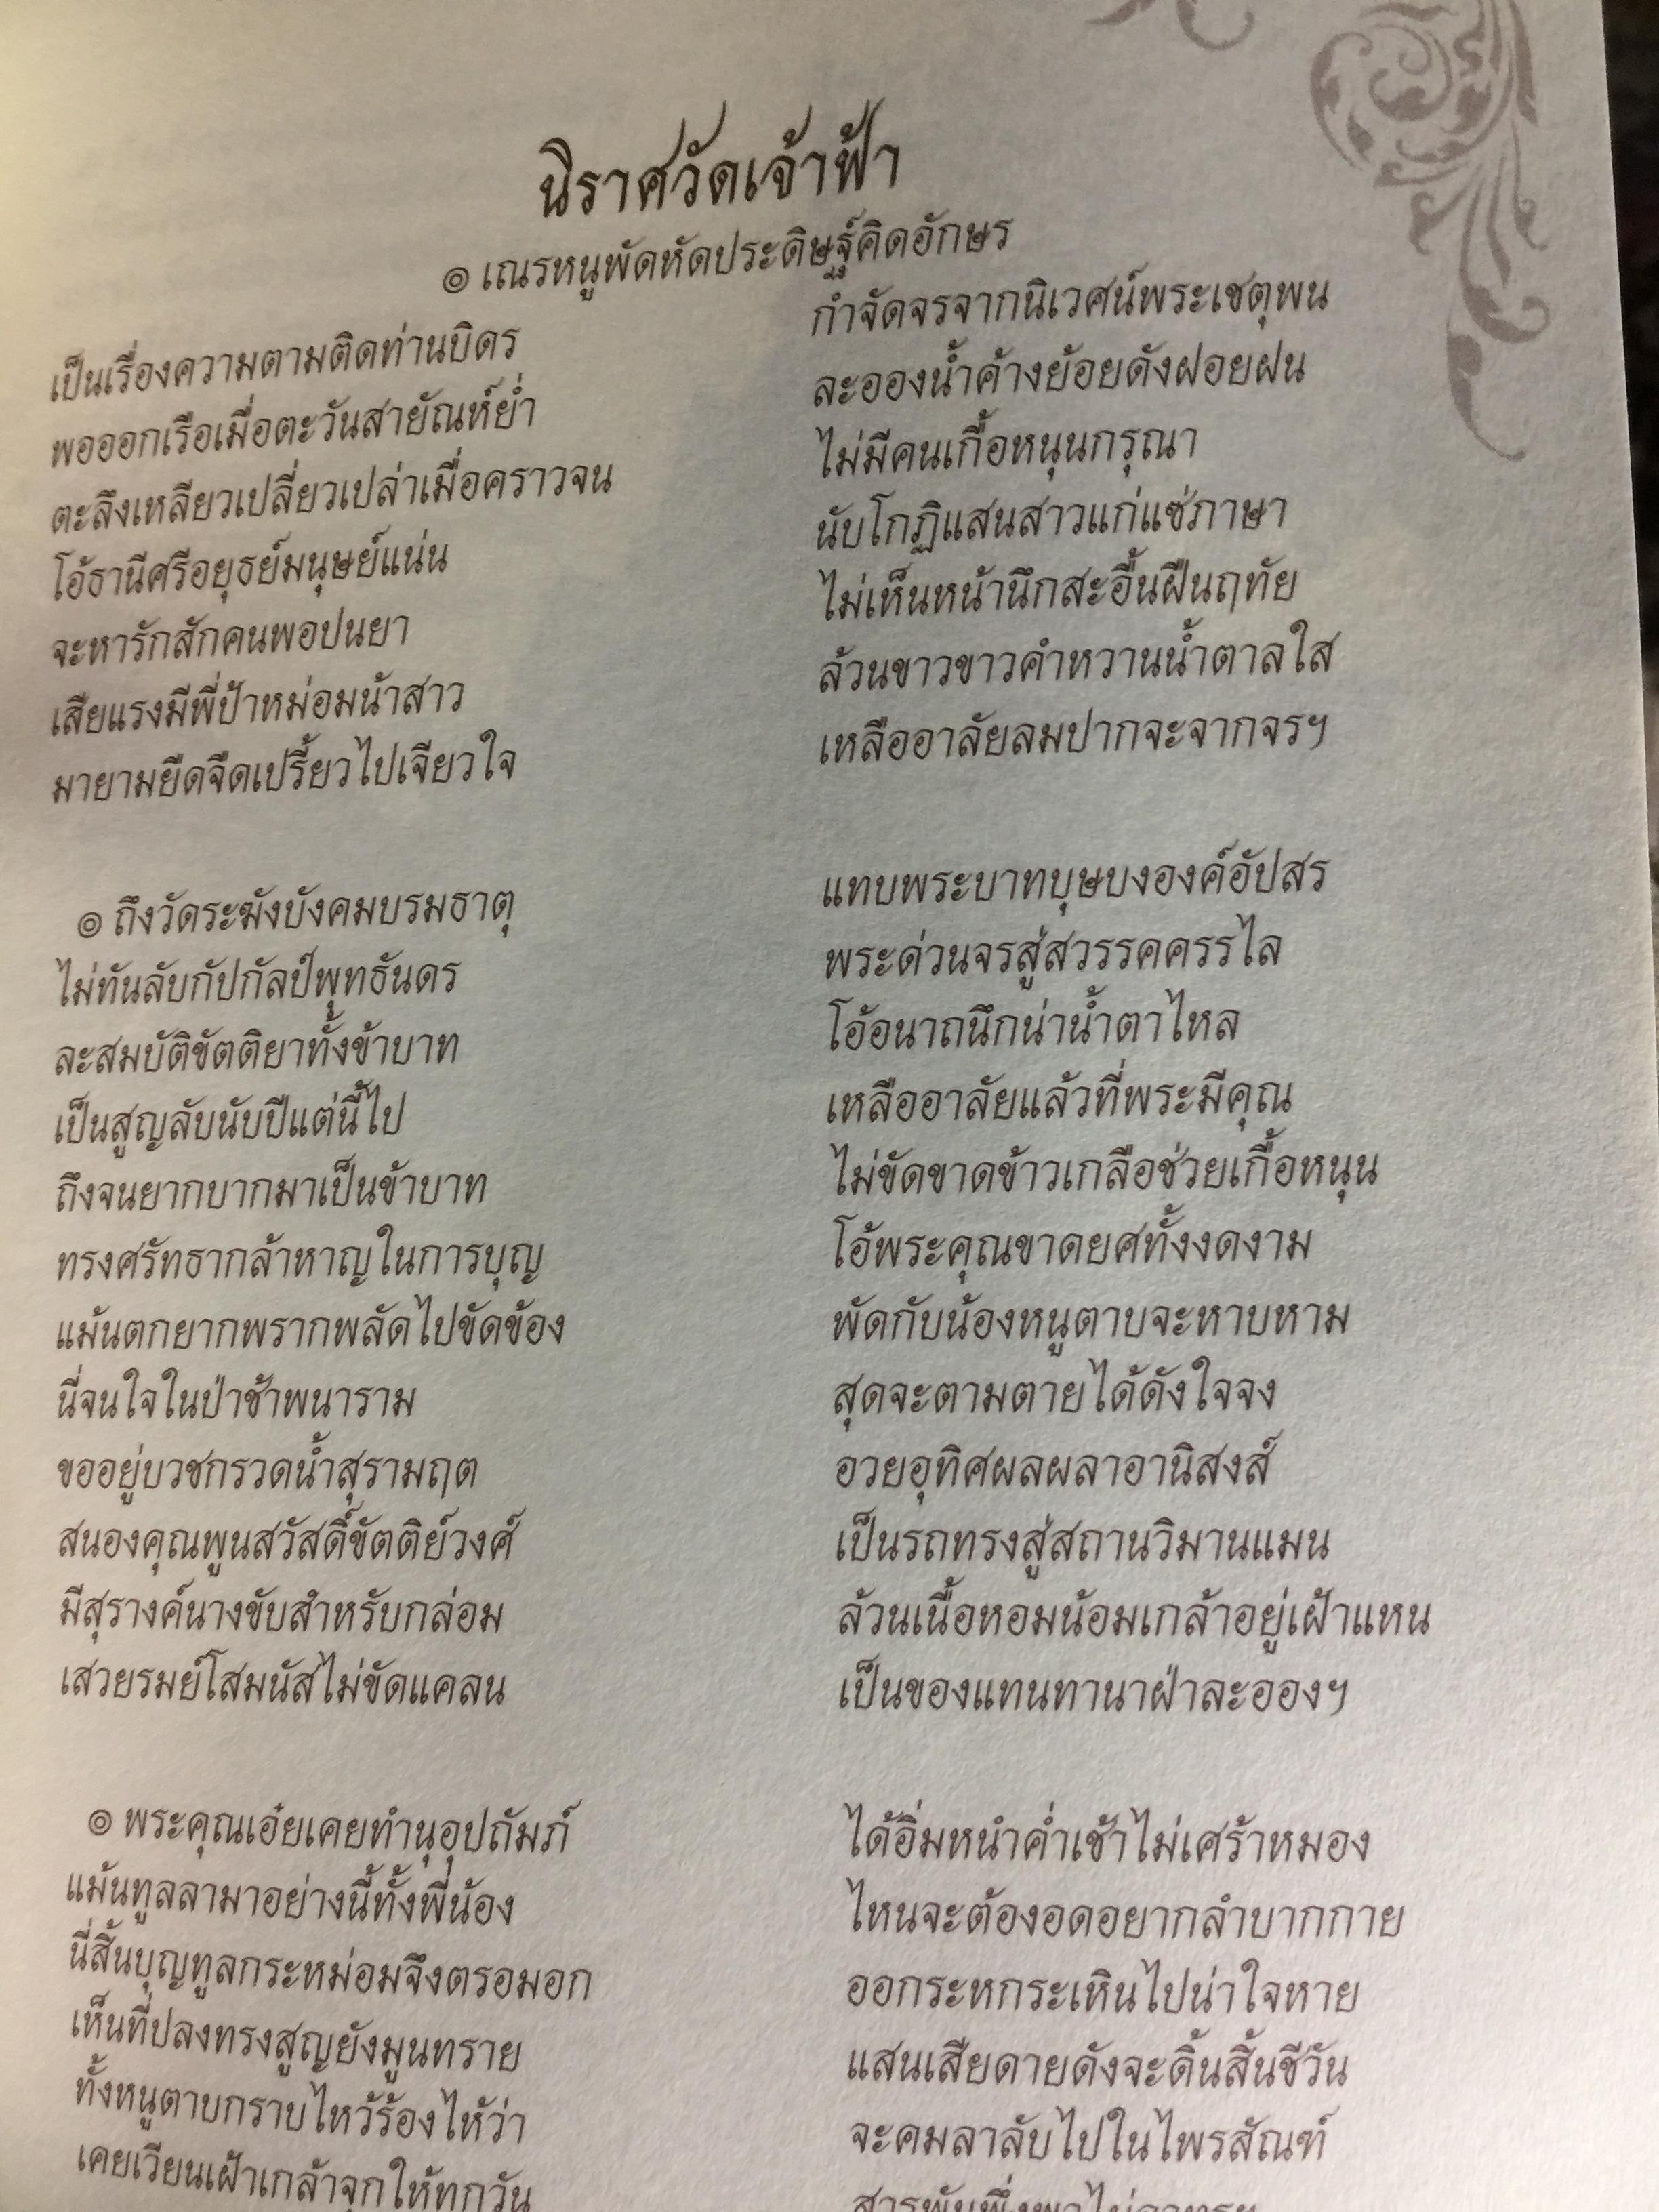 นิราศวัดเจ้าฟ้า
๏ เณรหนูพัดหัดประดิษฐ์คิดอักษร
เป็นเรื่องความตามติดท่านบิดร
กำจัดจรจากนิเวศน์พระเชตุพน
พอออกเรือเมื่อตะวันสายัณห์ย่ำ
ละอองน้ำค้างย้อยดังฝอยฝน
ตะลึงเหลียวเปลี่ยวเปล่าเมื่อคราวจน
ไม่มีคนเกื้อหนุนกรุณา
โอ้ธานีศรีอยุธย์มนุษย์แน่น
นับโกฏิแสนสาวแก่แซ่ภาษา
จะหารักสักคนพอปนยา
ไม่เห็นหน้านึกสะอื้นฝืนฤทัย
เสียแรงมีพี่ป้าหม่อมน้าสาว
ล้วนขาวขาวคำหวานน้ำตาลใส
มายามยืดจืดเปรี้ยวไปเจียวใจ
เหลืออาลัยลมปากจะจากจรฯ
๏ ถึงวัดระฆังบังคมบรมธาตุ
แทบพระบาทบุษบงองค์อัปสร
ไม่ทันลับกัปกัลป์พุทธันดร
พระด่วนจรสู่สวรรคครรไล
ละสมบัติขัตติยาทั้งข้าบาท
โอ้อนาถนึกน่าน้ำตาไหล
เป็นสูญลับนับปีแต่นี้ไป
เหลืออาลัยแล้วที่พระมีคุณ
ถึงจนยากบากมาเป็นข้าบาท
ไม่ขัดขาดข้าวเกลือช่วยเกื้อหนุน
ทรงศรัทธากล้าหาญในการบุญ
โอ้พระคุณขาดยศทั้งงดงาม
แม้นตกยากพรากพลัดไปขัดข้อง
พัดกับน้องหนูตาบจะหาบหาม
นี่จนใจในป่าช้าพนาราม
สุดจะตามตายได้ดังใจจง
ขออยู่บวชกรวดน้ำสุรามฤต
อวยอุทิศผลผลาอานิสงส์
สนองคุณพูนสวัสดิ์ขัตติย์วงศ์
เป็นรถทรงสู่สถานวิมานแมน
มีสุรางค์นางขับสำหรับกล่อม
ล้วนเนื้อหอมน้อมเกล้าอยู่เฝ้าแหน
เสวยรมย์โสมนัสไม่ขัดแคลน
เป็นของแทนทานาฝ่าละอองฯ
๏ พระคุณเอ๋ยเคยทำนุอุปถัมภ์
ได้อิ่มหนำค่ำเช้าไม่เศร้าหมอง
แม้นทูลลามาอย่างนี้ทั้งพี่น้อง
ไหนจะต้องอดอยากลำบากกาย
นี่สิ้นบุญทูลกระหม่อมจึงตรอมอก
ออกระหกระเหินไปน่าใจหาย
เห็นที่ปลงทรงสูญยังมูนทราย
แสนเสียดายดังจะดิ้นสิ้นชีวัน
ทั้งหนูตาบกราบไหว้ร้องไห้ว่า
จะคมลาลับไปในไพรสัณฑ์
เคยเวียนเฝ้าเกล้าจุกให้ทุกวัน